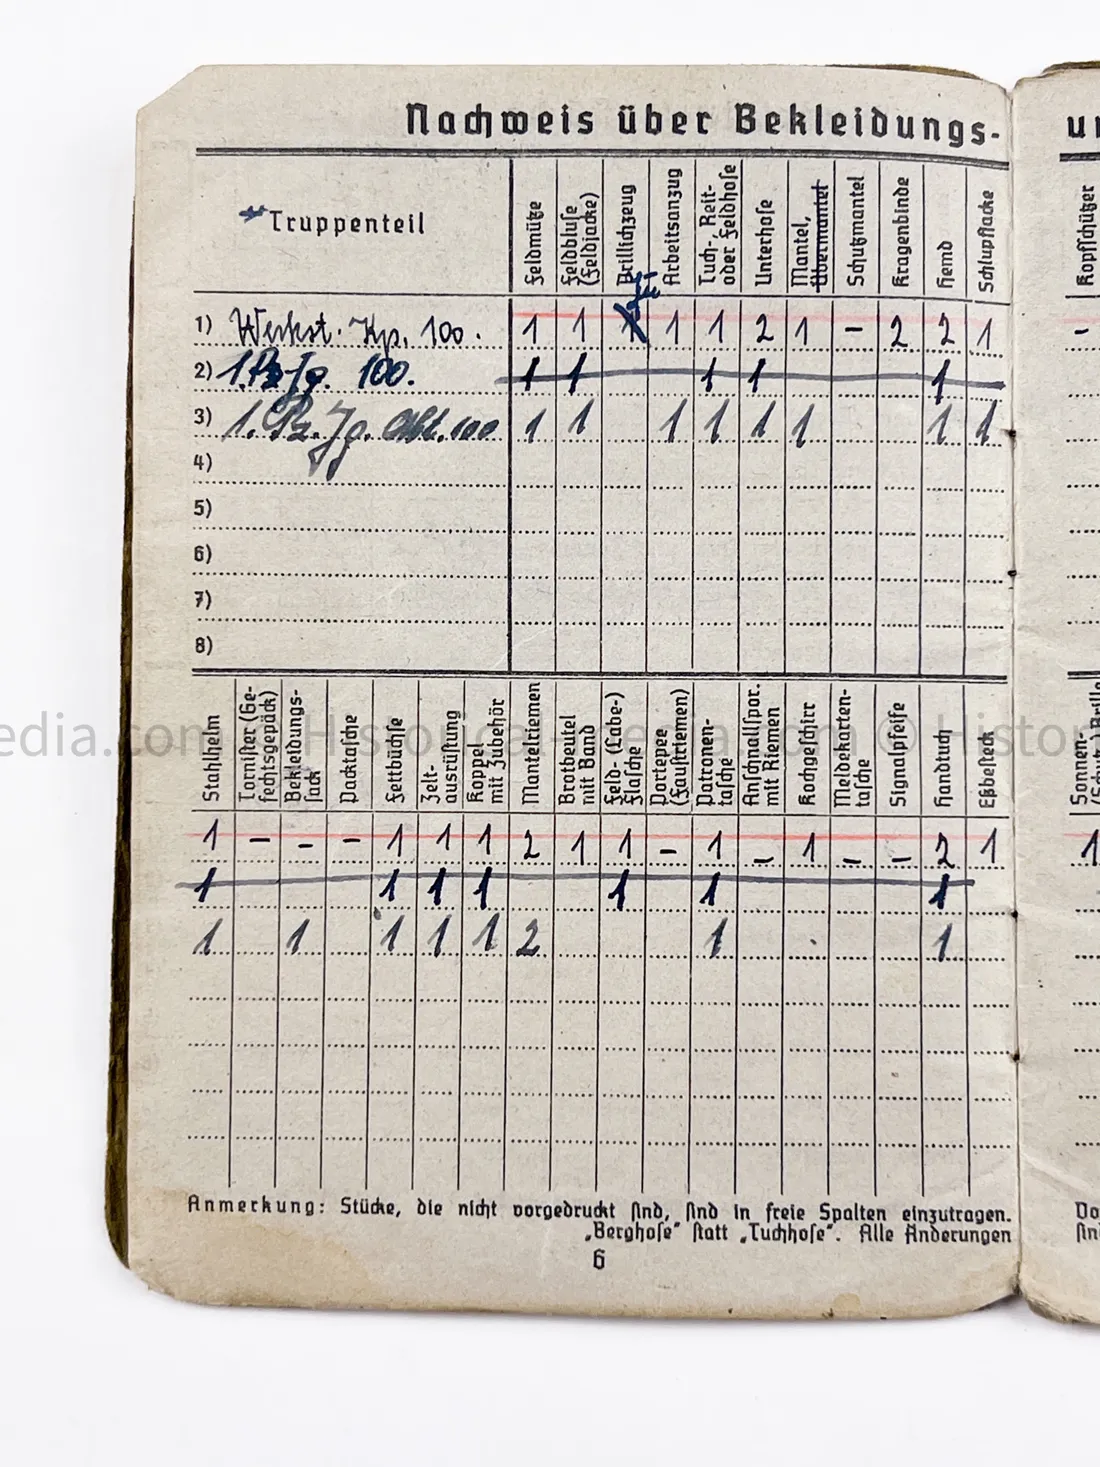 Nachweis über Bekleidungs-
*Truppenteil
Feldmütze
Feldbluse (Feldjacke)
Drillichzeug
Arbeitsanzug
Tuch-, Reit- oder Feldhose
Unterhose
Mantel, Übermantel
Schutzmantel
Kragenbinde
Hemd
Schlupfjacke
Kopfschützer
1) Werkst. Kp. 100. 1 1 1 1 1 2 1 – 2 2 1 –
2) 1. Pz Jg. 100. 1 1 1 1 1
3) 1. Pz. Jg. Abt. 100 1 1 1 1 1 1 1 1
4)
5)
6)
7)
8)
Stahlhelm
Tornister (Gefechtsgepäck)
Bekleidungssack
Packtasche
Fettbüchse
Zeltausrüstung
Koppel mit Zubehör
Mantelriemen
Brotbeutel mit Band
Feld- (Labe-) Flasche
Portepee (Faustriemen)
Patronentasche
Anschnallspor. mit Riemen
Kochgeschirr
Meldekartentasche
Signalpfeife
Handtuch
Eßbesteck
Sonnen-
1 – – – 1 1 1 2 1 1 – 1 – 1 – – 2 1 1
1 1 1 1 1 1 1
1 1 1 1 1 2 1 1
Anmerkung: Stücke, die nicht vorgedruckt sind, sind in freie Spalten einzutragen.
„Berghose" statt „Tuchhose". Alle Änderungen
6
edia.com © Historical-Media.com © Histor